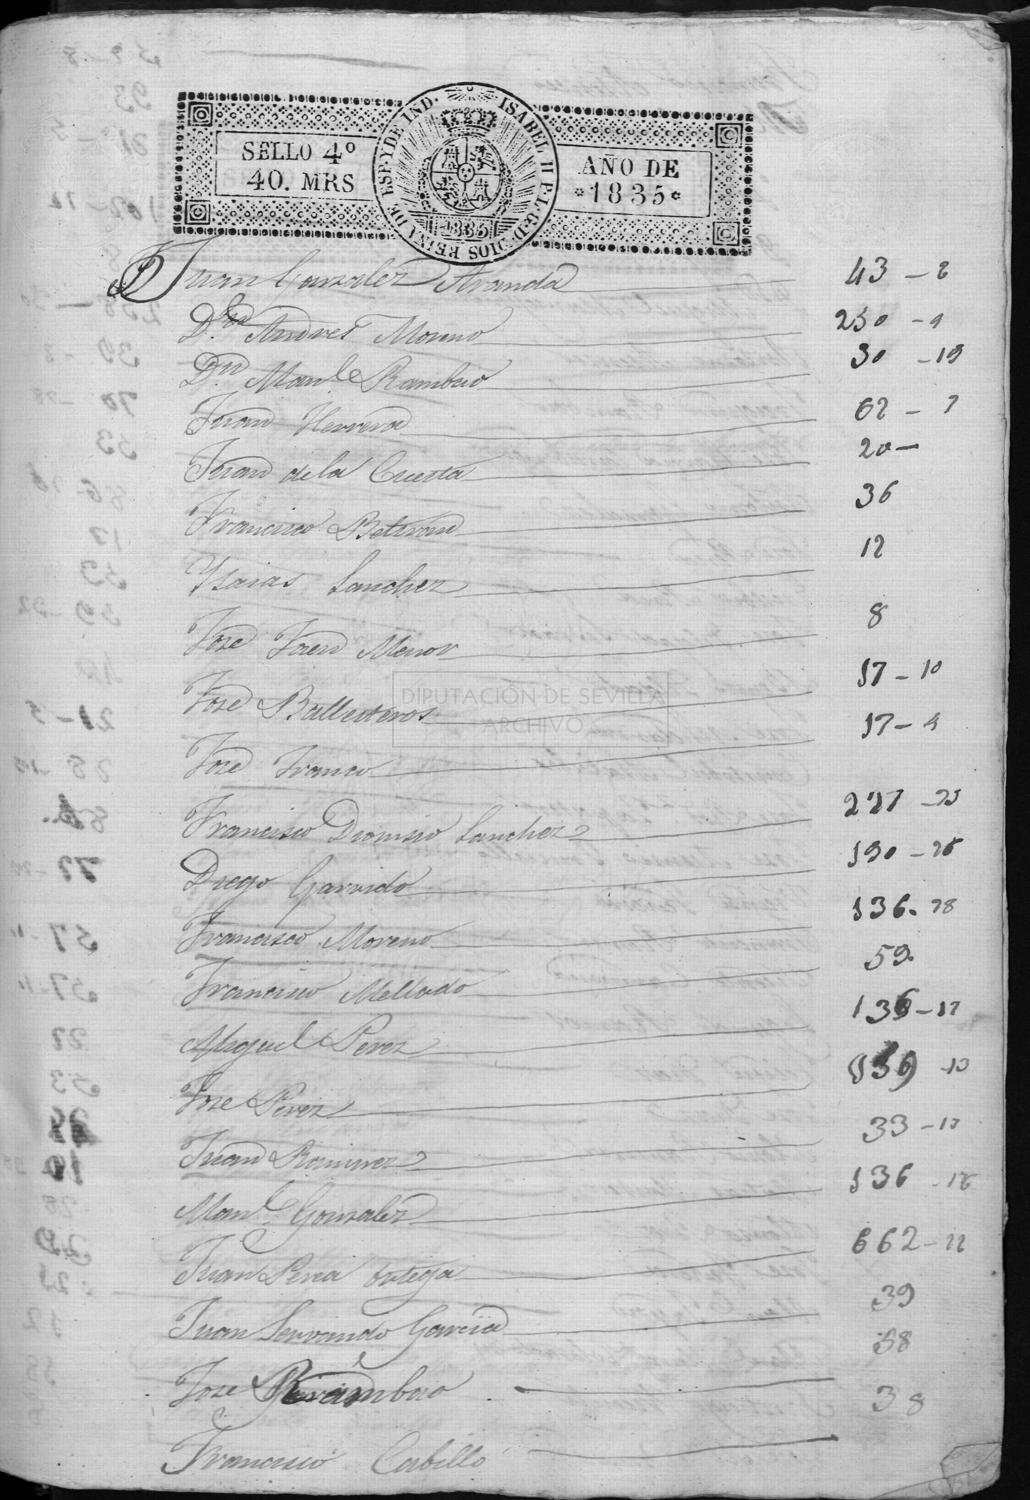 SELLO 4º
40. MRS
ISABEL II P.L.G.D. DIOS REINA DE ESP. Y DE IND.
1835
AÑO DE
1835
Juan Gonzalez Aranda 43 - 2
Dn Andres Moreno 250 - 9
Dn Manl Rambao 30 - 19
Juan Herrera 62 - 7
Juan de la Cuesta 20 -
Francisco Beltran 36
Ysaias Sanchez 12
Jose Jaen Menor 8
Jose Ballesteros 17 - 10
Jose Franco 17 - 4
Francisco Dionisio Sanchez 227 - 33
Diego Garrido 190 - 26
Francisco Moreno 136. 28
Francisco Mellado 59.
Miguel Perez 136 - 17
Jose Perez 136 - 13
Juan Ramirez 33 - 17
Manl Gonzalez 136 - 16
Juan Peria Ortega 662 - 22
Juan Servando Garcia 39
Jose Rambao 38
Francisco Cabello 38
DIPUTACIÓN DE SEVILLA
ARCHIVO